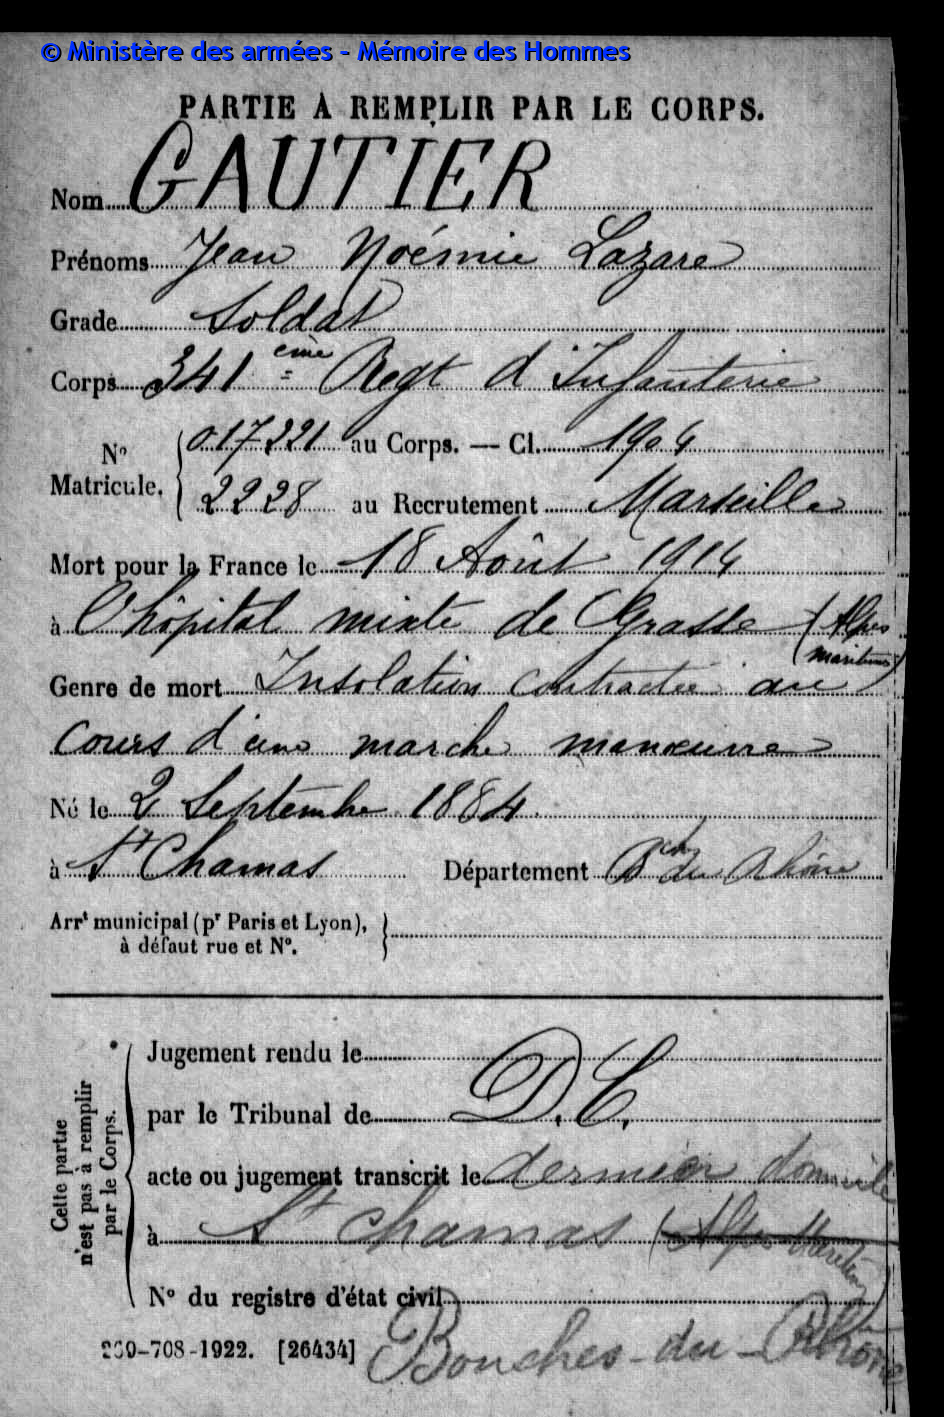 © Ministère des armées - Mémoire des Hommes
PARTIE À REMPLIR PAR LE CORPS.
Nom GAUTIER
Prénoms Jean Noémie Lazare
Grade Soldat
Corps 341ème Regt d'Infanterie
N° Matricule. { 017221 au Corps. — Cl. 1904
2228 au Recrutement Marseille
Mort pour la France le 18 Août 1914
à l'hôpital mixte de Grasse (Alpes
maritimes)
Genre de mort Insolation contractée au
cours d'une marche manœuvre
Né le 2 Septembre 1884.
à St Chamas Département Bches du Rhône
Arrt municipal (pr Paris et Lyon),
à défaut rue et N°.
Cette partie
n'est pas à remplir
par le Corps.
Jugement rendu le
par le Tribunal de D.C.
acte ou jugement transcrit le dernier domicile
à St Chamas (Alpes Maritimes)
N° du registre d'état civil
Bouches-du-Rhône
260-708-1922. [26434]